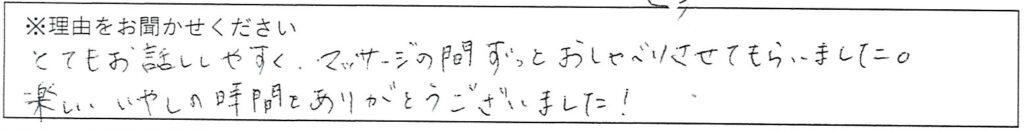 ※理由をお聞かせください
とてもお話ししやすく、マッサージの間ずっとおしゃべりさせてもらいました。
楽しい いやしの時間をありがとうございました！